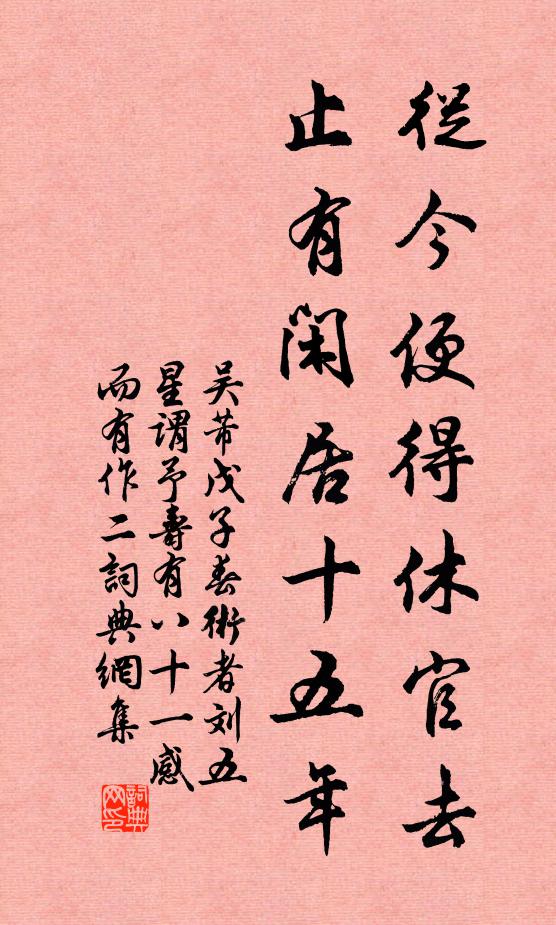 從今便得休官去
止有閑居十五年
吴芾戊子春術者刘五
星謂予壽有八十一感
而有作二詞典網集
詞典网印